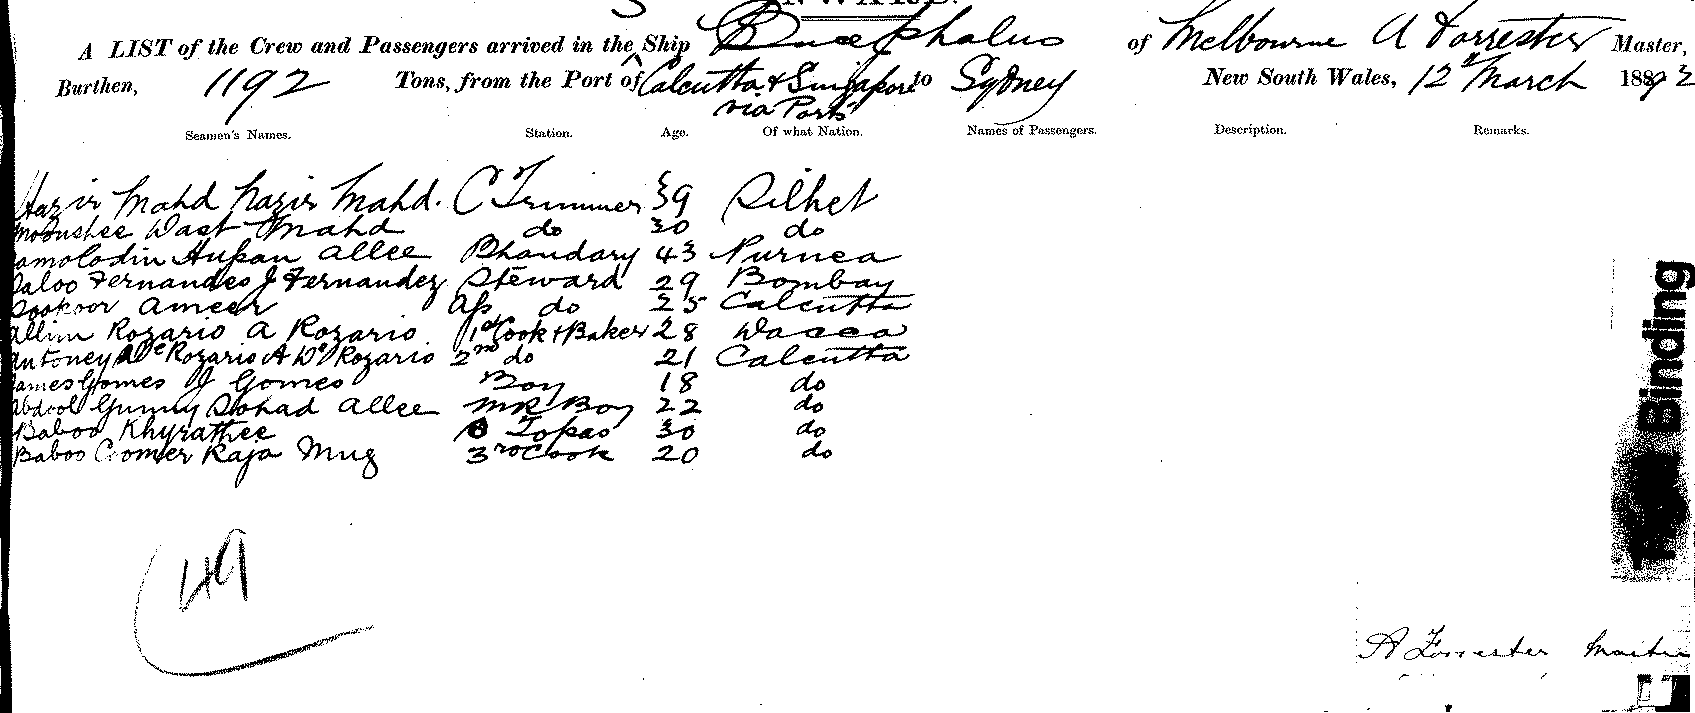 A LIST of the Crew and Passengers arrived in the Ship Bucephalus of Melbourne A Forrester Master,
Burthen, 1192 Tons, from the Port of Calcutta & Singapore to Sydney New South Wales, 12th March 1893
via Ports
Seamen's Names. Station. Age. Of what Nation. Names of Passengers. Description. Remarks.
Nazir Mahd. C Trimmer 39 Silhet
Moonshee Wast Mahd do 30 do
Allee Bhandary 43 Purnea
Fernandes J Fernandez Steward 29 Bombay
Ameer As do 25 Calcutta
Rozario A Rozario 1st Cook & Baker 28 Dacca
Antoney De Rozario A De Rozario 2nd do 21 Calcutta
James Gomes J Gomes Boy 18 do
Abdool Gunny Sohad Allee Boy 22 do
Baboo Khyrathee Topas 30 do
Baboo Comer Raja Mug 3rd Cook 20 do
49
Binding
A Forrester Master